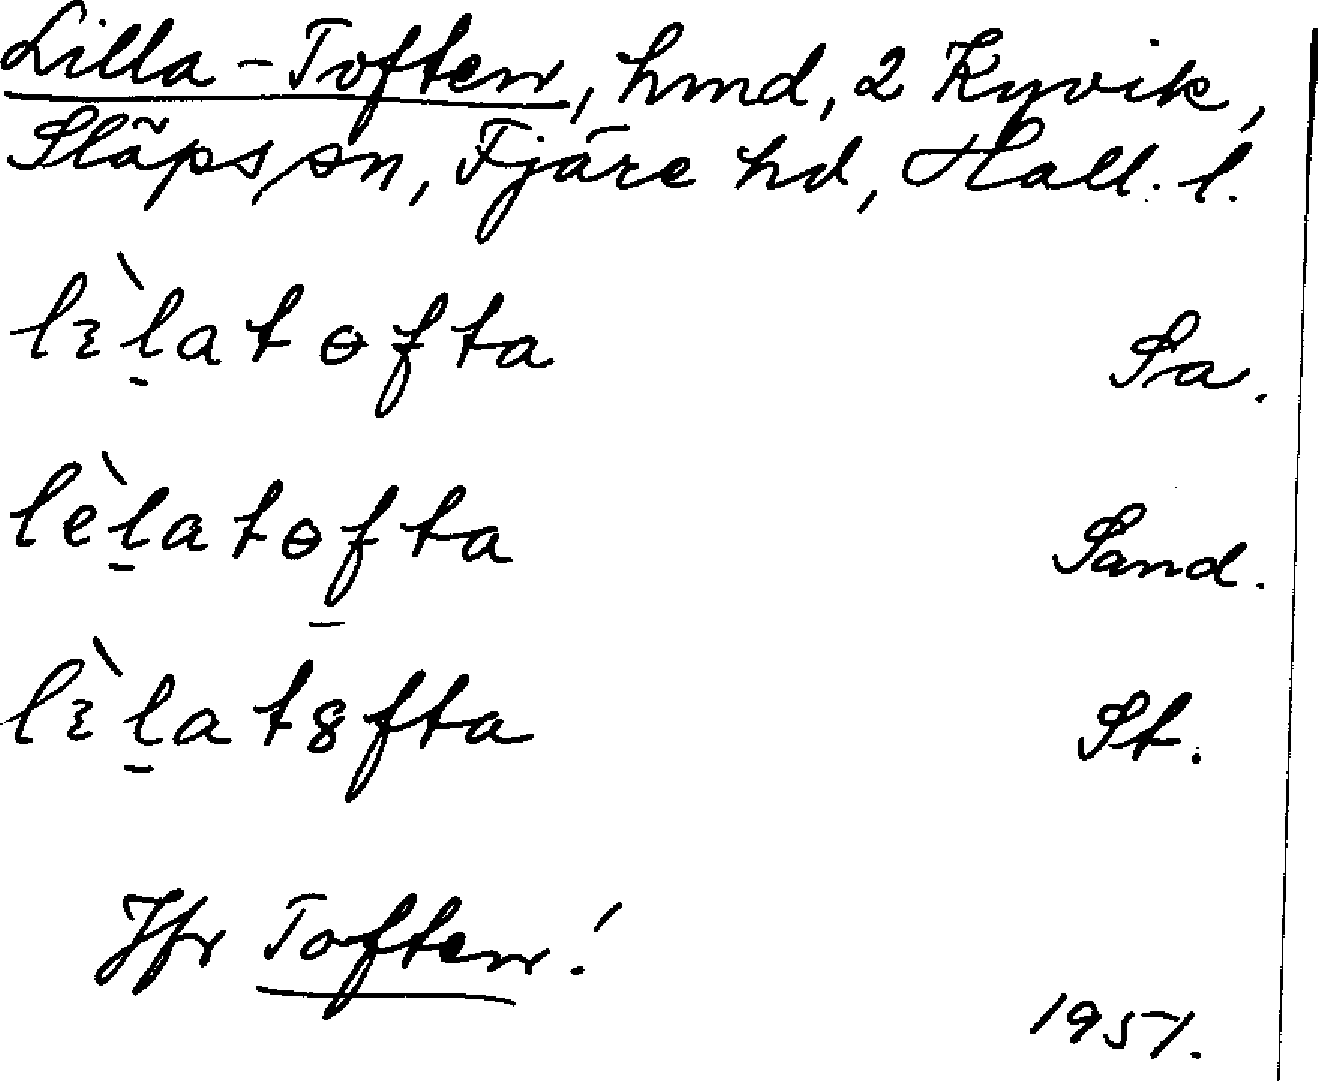 Lilla-Toften, hmd, 2 Kyvik,
Släps sn, Fjäre hd, Hall. l.
lɛ̀l̠atɵfta Sa.
lèl̠atɵf̠ta Sand.
lɛ̀l̠at8fta St.
Jfr Toften!
1951.